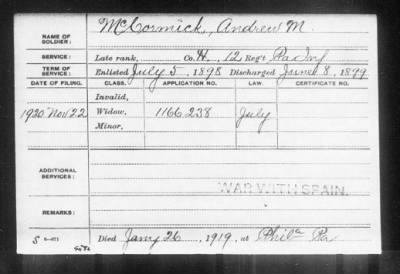 McCormick, Andrew M.
NAME OF SOLDIER:
SERVICE: Late rank, Co. H, 12 Reg't Pa Inf
TERM OF SERVICE: Enlisted July 5, 1898 Discharged June 8, 1899
DATE OF FILING. CLASS. APPLICATION NO. LAW. CERTIFICATE NO.
Invalid,
1920 Nov 22 Widow, 1166 238 July
Minor,
ADDITIONAL SERVICES:
WAR WITH SPAIN.
REMARKS:
Died Jany 26, 1919, at Phila Pa